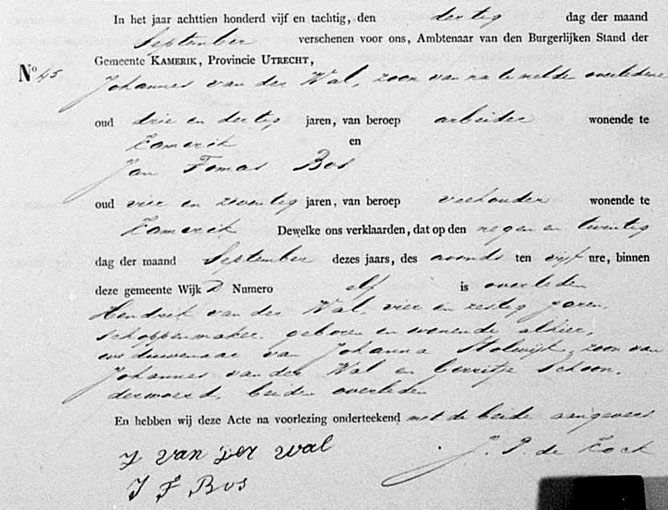 In het jaar achttien honderd vijf en tachtig, den dertig dag der maand
September verschenen voor ons, Ambtenaar van den Burgerlijken Stand der
Gemeente KAMERIK, Provincie UTRECHT,
No 45 Johannes van der Wal, zoon van na te melden overledene
oud drie en dertig jaren, van beroep arbeider wonende te
Kamerik en
Jan Fomas Bos
oud vier en zeventig jaren, van beroep veehouder wonende te
Kamerik Dewelke ons verklaarden, dat op den negen en twintig
dag der maand September dezes jaars, des avonds ten vijf ure, binnen
deze gemeente Wijk D Numero elf is overleden
Hendrik van der Wal, vier en zestig jaren,
schoppenmaker geboren en wonende alhier,
weduwenaar van Johanna Stolwijk, zoon van
Johannes van der Wal en Gerritje Schoon-
derwoerd, beiden overleden
En hebben wij deze Acte na voorlezing onderteekend met de beide aangevers
J van der wal J. P. de Kock
J F Bos